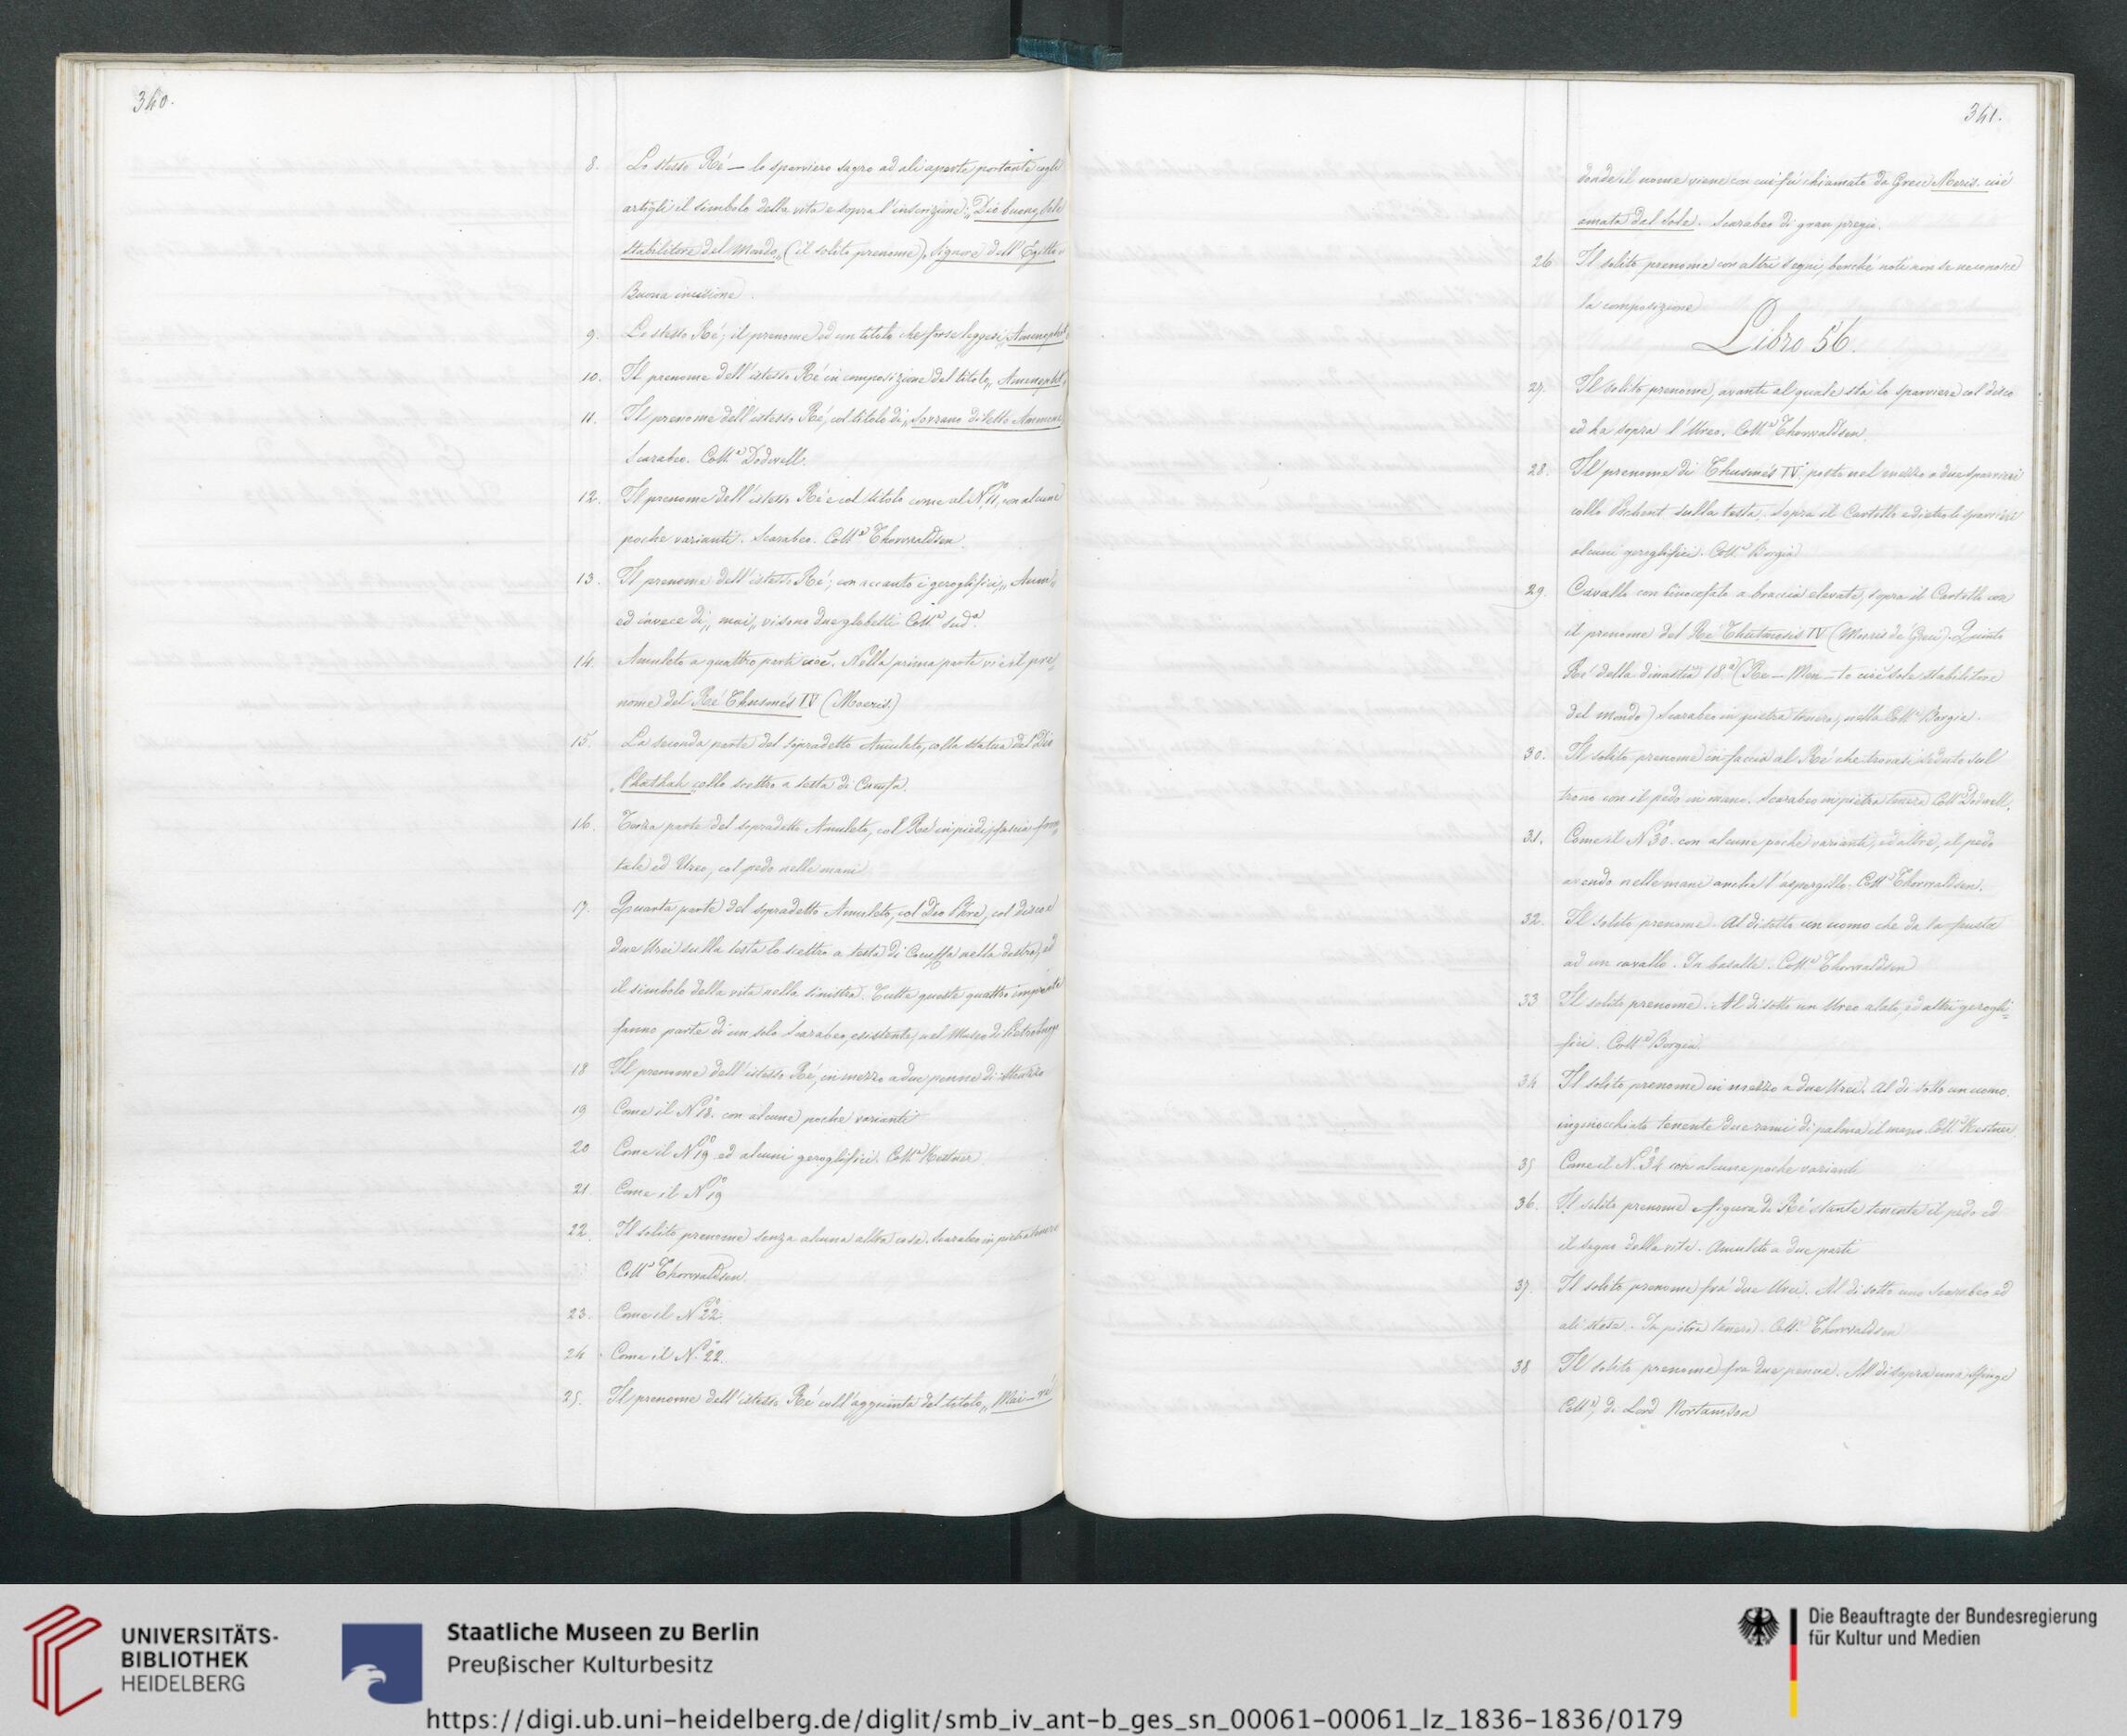 340.
8. Lo stesso Ré — lo sparviero sagro ad ali aperte, portante cogli
artigli il simbolo della vita e sopra l'inscrizione: „Dio buono, Sole
stabilitore del Mondo„ (il solito prenome), Signore dell'Egitto„
Buona incisione.
9. Lo stesso Ré; il prenome, ed un titolo che forse leggesi „Amenophtet„
10. Il prenome dell'istesso Ré in composizione del titolo „Amenophtet„
11. Il prenome dell'istesso Ré, col titolo di „Sovrano diletto Ammone„
Scarabeo. Coll.ᵃ Dodwell.
12. Il prenome dell'istesso Ré e col titolo come al Nº 11, con alcune
poche varianti. Scarabeo. Collᵃ Thorwaldsen.
13. Il prenome dell'istesso Ré; con accanto i geroglifici, „Amn„
ed invece di „mai„ vi sono due globetti. Coll.ᵃ sud.ᵃ
14. Amuleto a quattro parti cioé. Nella prima parte vi é il pre„
nome del Ré Thusmés IV (Moeris.)
15. La seconda parte del sopradetto Amuleto, colla statua del Dio
„Phathah„ collo scettro a testa di Cucufa.
16. Terza parte del sopradetto Amuleto, col Ré in piedi, fascia fron„
tale ed Ureo, col pedo nelle mani
17. Quarta parte del sopradetto Amuleto, col Dio Phre, col disco e
due Urei sulla testa lo scettro a testa di Cucuffa nella destra, ed
il simbolo della vita nella sinistra. Tutte queste quattro impronte
fanno parte di un solo Scarabeo, esistente, nel Museo di Pietroburgo
18 Il prenome dell'istesso Ré, in mezzo a due penne di Struzzo
19 Come il Nº 18. con alcune poche varianti
20 Come il Nº 19 ed alcuni geroglifici. Coll.ᵃ Kestner
21. Come il Nº 19
22. Il solito prenome senza alcuna altra cosa. Scarabeo in pietra tenera
Collᵃ Thorwaldsen.
23. Come il Nº 22.
24. Come il Nº 22.
25. Il prenome dell'istesso Ré coll'aggiunta del titolo „Mai-ré
341.
donde il nome viene con cui fu chiamato da Greci Meris. cioé
amato dal Sole. Scarabeo di gran pregio.
26 Il solito prenome con altri segni, benché noti non se ne conosce
la composizione
Libro 56.
27. Il solito prenome, avanti al quale sta lo sparviere col disco
ed ha sopra l'Ureo. Collᵃ Thorwaldsen.
28. Il prenome di Thusmés IV. posto nel mezzo a due sparvieri
collo Pschent sulla testa, sopra il Cartello e dietro lo sparviere
alcuni geroglifici. Collᵃ Borgia
29. Cavallo con cinocefalo a braccia elevate, sopra il Cartello con
il prenome del Ré Thutmosis IV (Moeris de' Greci) Quinto
Ré della dinastia 18.ᵃ (Re — Men — to cioé Sole stabilitore
del mondo) Scarabeo in pietra tenera, nella Collᵃ Borgia.
30. Il solito prenome in faccia al Ré che trovasi seduto sul
trono con il pedo in mano. Scarabeo in pietra tenera Collᵃ Dodwell.
31. Come il Nº 30. con alcune poche varianti, ed oltre, il pedo
avendo nelle mani anche l'aspergillo. Collᵃ Thorwaldsen.
32. Il solito prenome. Al di sotto un uomo che da la frusta
ad un cavallo. In basalte. Collᵃ Thorwaldsen
33 Il solito prenome. Al di sotto un Ureo alato, ed altri gerogli=
fici. Collᵃ Borgia.
34 Il solito prenome in mezzo a due Urei. Al di sotto un uomo
inginocchiato tenente due rami di palma il mano. Collᵃ Kestner
35 Come il Nº 34 con alcune poche varianti
36. Il solito prenome e figura di Ré stante tenente il pedo ed
il segno della vita. Amuleto a due parti
37. Il solito prenome fra due Urei. Al di sotto uno Scarabeo ad
ali stese. In pietra tenera. Collᵃ Thorwaldsen
38 Il solito prenome fra due penne. Al di sopra una Sfinge
Collᵃ di Lord Nortamton
UNIVERSITÄTS-
BIBLIOTHEK
HEIDELBERG
Staatliche Museen zu Berlin
Preußischer Kulturbesitz
Die Beauftragte der Bundesregierung
für Kultur und Medien
https://digi.ub.uni-heidelberg.de/diglit/smb_iv_ant-b_ges_sn_00061-00061_lz_1836-1836/0179